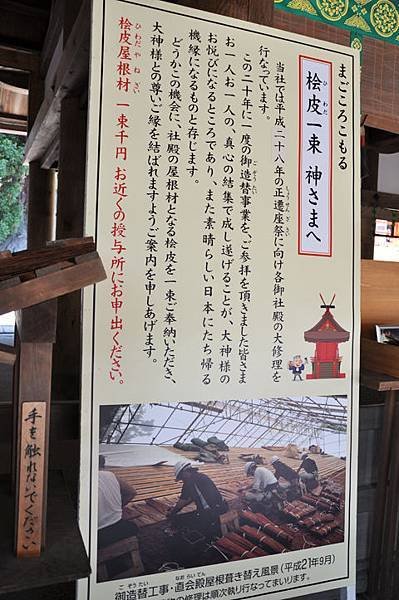 まごころこもる
檜皮一束 神さまへ
ひわだ
当社では平成二十八年の正遷座祭に向け各御社殿の大修理を
しょうせんざさい
行なっています。
この二十年に一度の御造替事業を、ご参拝を頂きました皆さま
ごぞうたい
お一人お一人の、真心の結集で成し遂げることが、大神様の
お悦びになるところであり、また素晴らしい日本にたち帰る
機縁になるものと存じます。
どうかこの機会に、社殿の屋根材となる檜皮を一束ご奉納いただき、
大神様との尊いご縁を結ばれますようご案内を申しあげます。
檜皮屋根材 一束千円 お近くの授与所にお申出ください。
ひわだやねざい
手を触れないでください
御造替工事・直会殿屋根葺き替え風景(平成21年9月)
ごぞうたい
なおらいでん
の修理は順次執り行なってまいります。